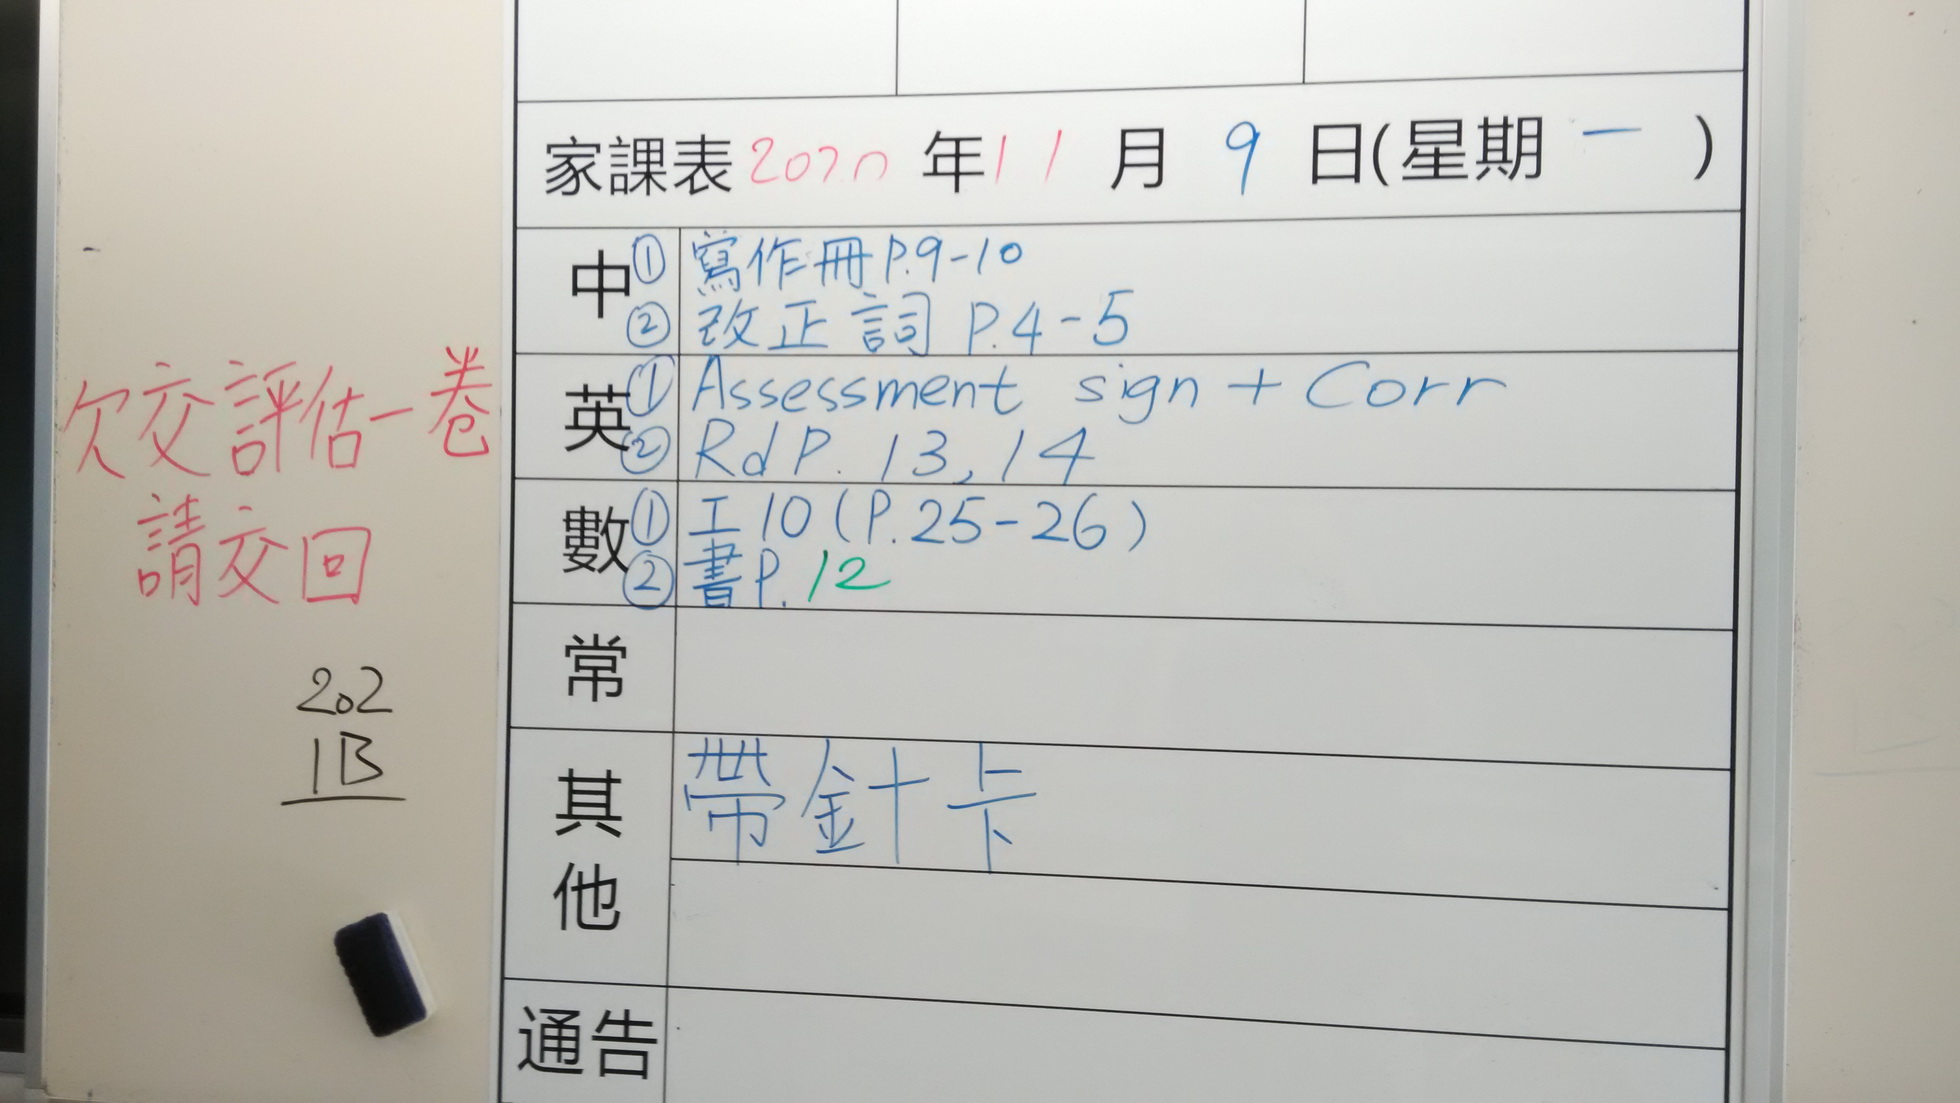 家課表 2020 年 11 月 9 日(星期 一 )
中 ① 寫作冊 P.9-10
② 改正 詞 P.4-5
英 ① Assessment sign + Corr
② Rd P. 13, 14
數 ① 工10 (P.25-26)
② 書P. 12
常
其他 帶針卡
通告
欠交評估一卷
請交回
202
1B